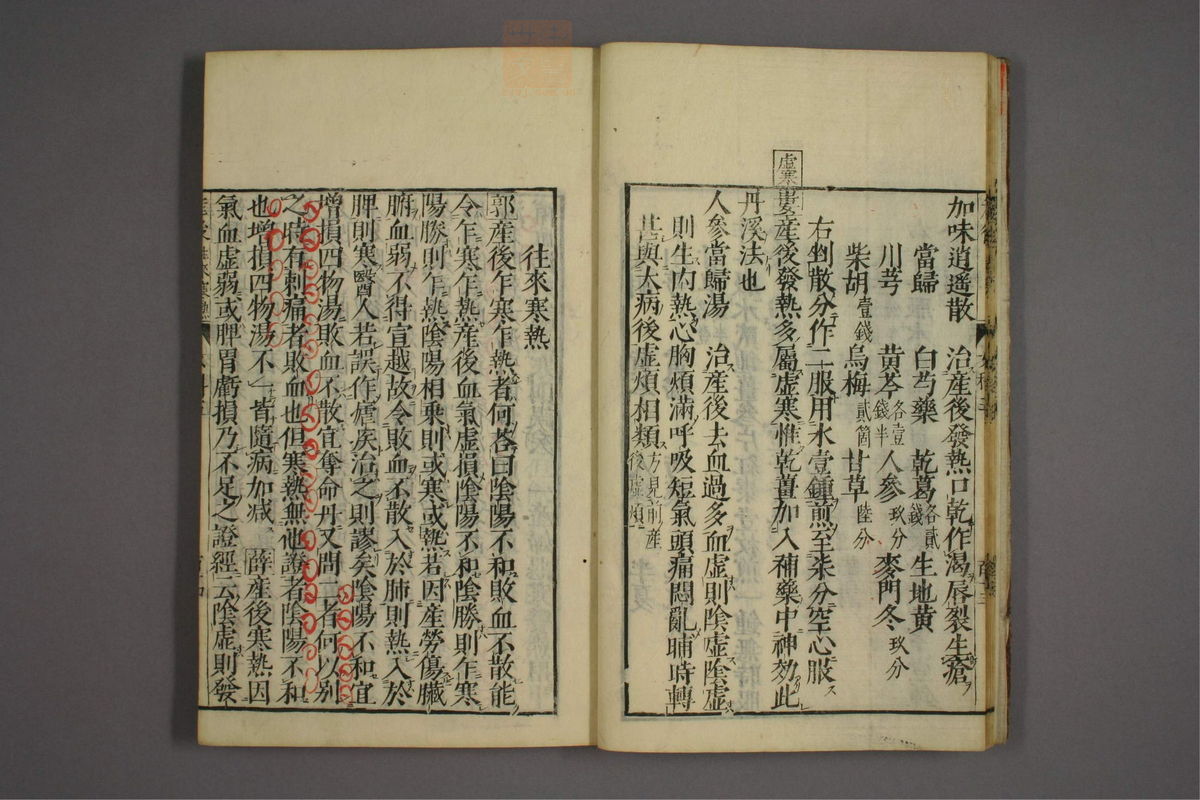 加味逍遥散　治産後發熱口乾作渴唇裂生瘡
當歸　白芍藥　乾葛各貳錢　生地黄
川芎　黄芩各壹錢半　人參玖分　麥門冬玖分
柴胡壹錢　烏梅貳箇　甘草陸分
右剉散分作二服用水壹鍾煎至柒分空心服
虚寒
産後發熱多屬虚寒惟乾薑加入補藥中神効此
丹溪法也
人參當歸湯　治産後去血過多血虚則陰虚陰虚
則生内熱心胸煩滿呼吸短氣頭痛悶亂晡時轉
甚與大病後虚煩相類方見前産後虚煩
往來寒熱
郭産後乍寒乍熱者何荅曰陰陽不和敗血不散能
令乍寒乍熱産後血氣虚損陰陽不和陰勝則乍寒
陽勝則乍熱陰陽相乗則或寒或熱若因産勞傷臟
腑血弱不得宣越故令敗血不散入於肺則熱入於
脾則寒醫人若誤作瘧疾治之則謬矣陰陽不和宜
增損四物湯敗血不散宜奪命丹又問二者何以别
之時有刺痛者敗血也但寒熱無他證者陰陽不和
也增損四物湯不一皆隨病加减　薛産後寒熱因
氣血虚弱或脾胃虧損乃不足之證經云陰虚則發